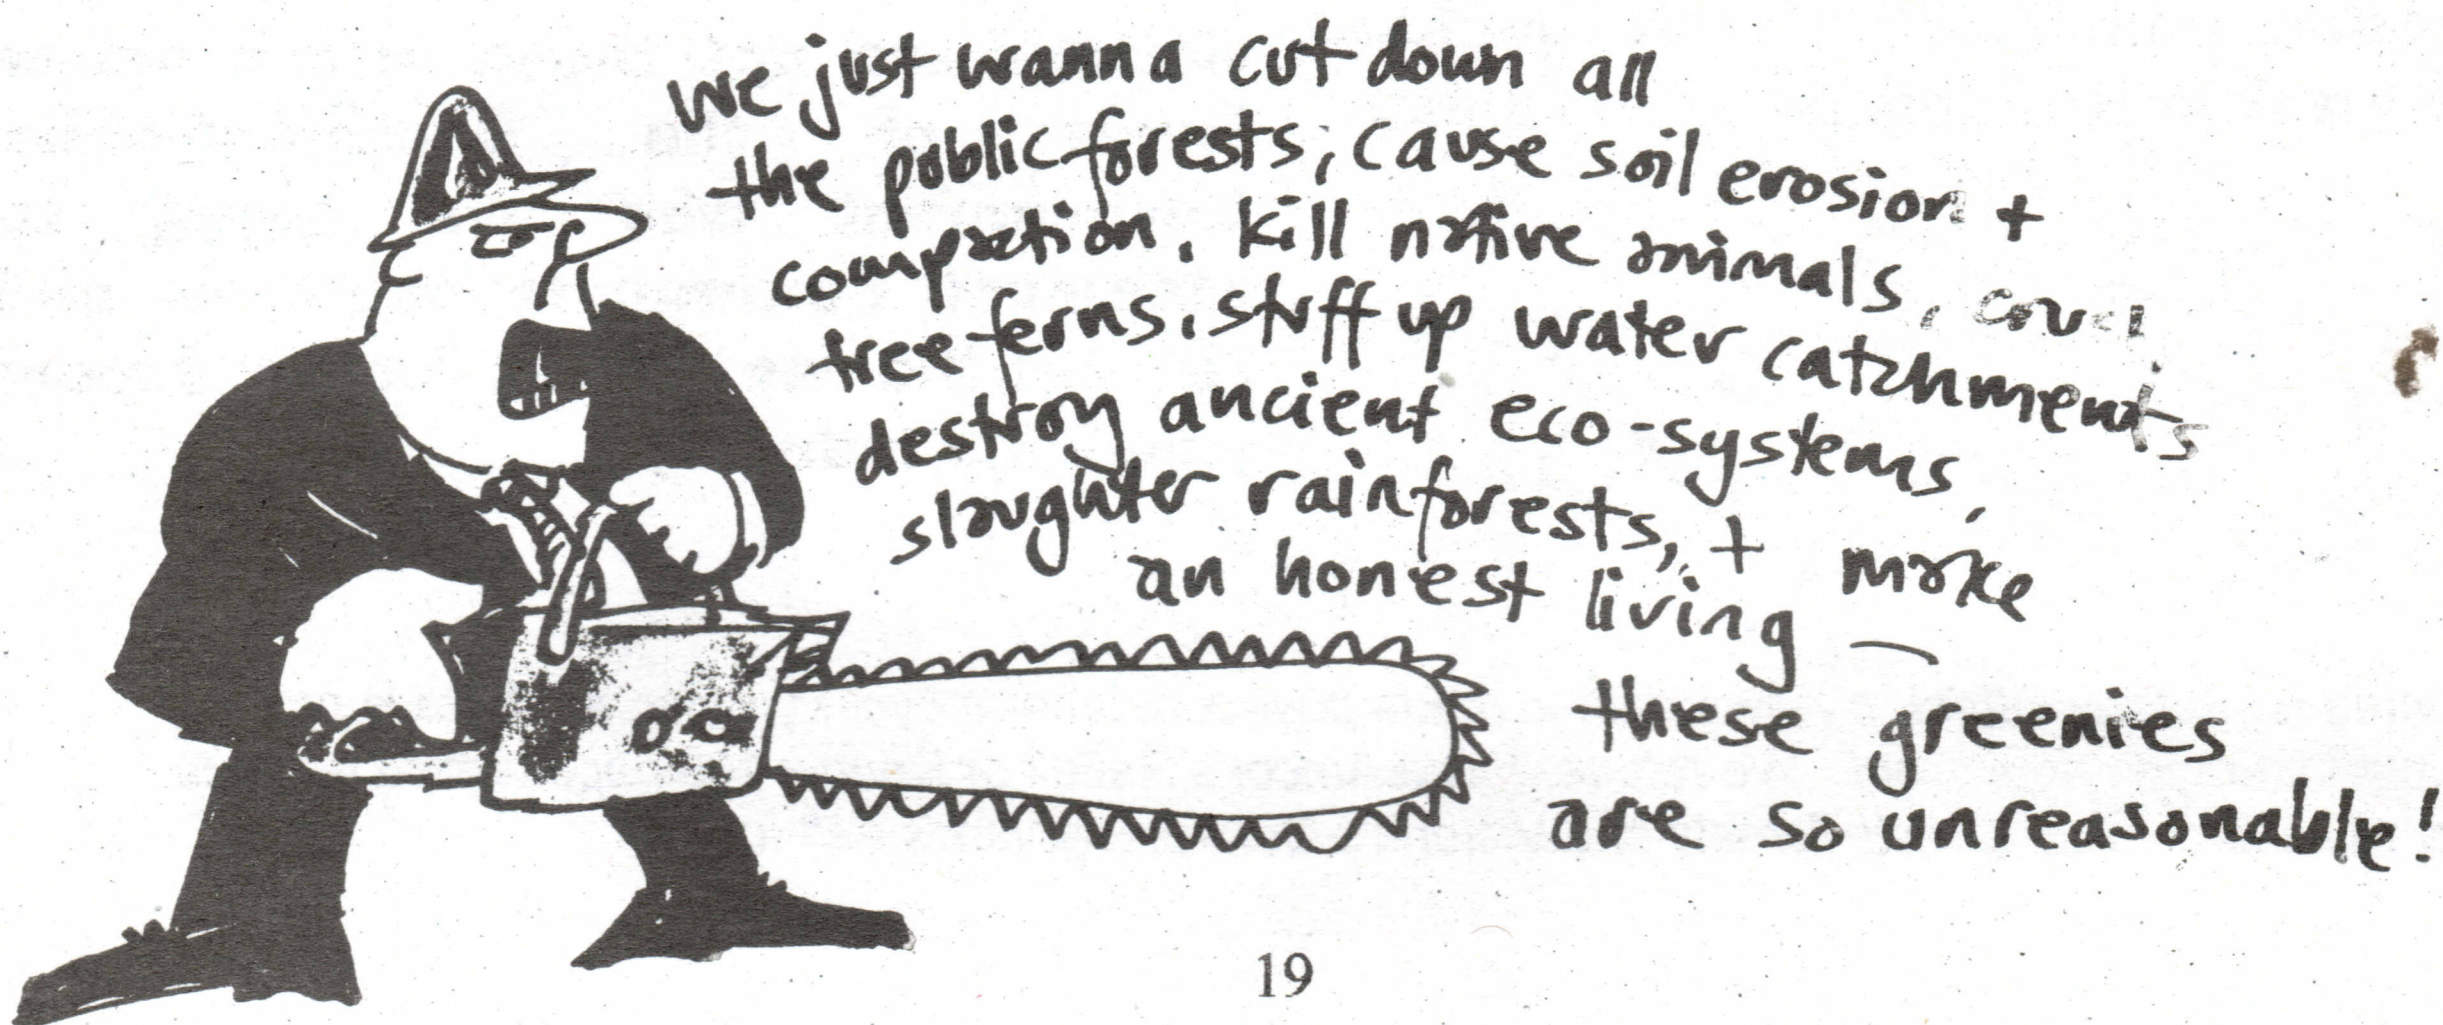 we just wanna cut down all
the public forests, cause soil erosion +
compaction, kill native animals,
tree ferns, stuff up water catchments
destroy ancient eco-systems,
slaughter rainforests, + make
an honest living —
these greenies
are so unreasonable!
19